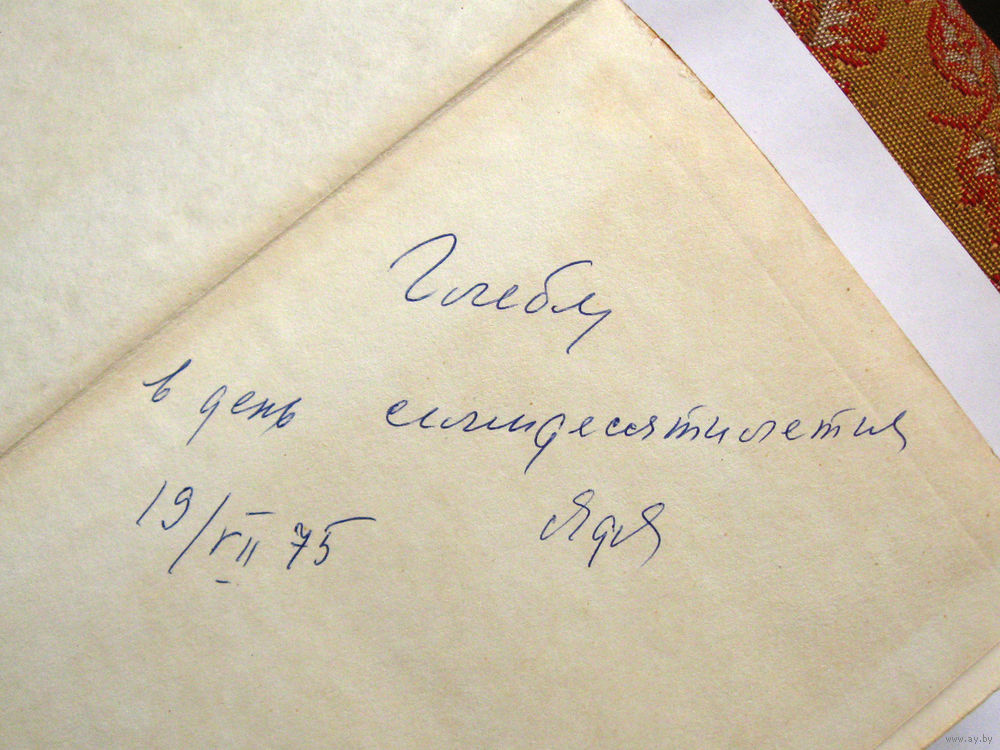 Глебу
в день семидесятилетия
19/VII 75 ЯдЯ
www.ay.by